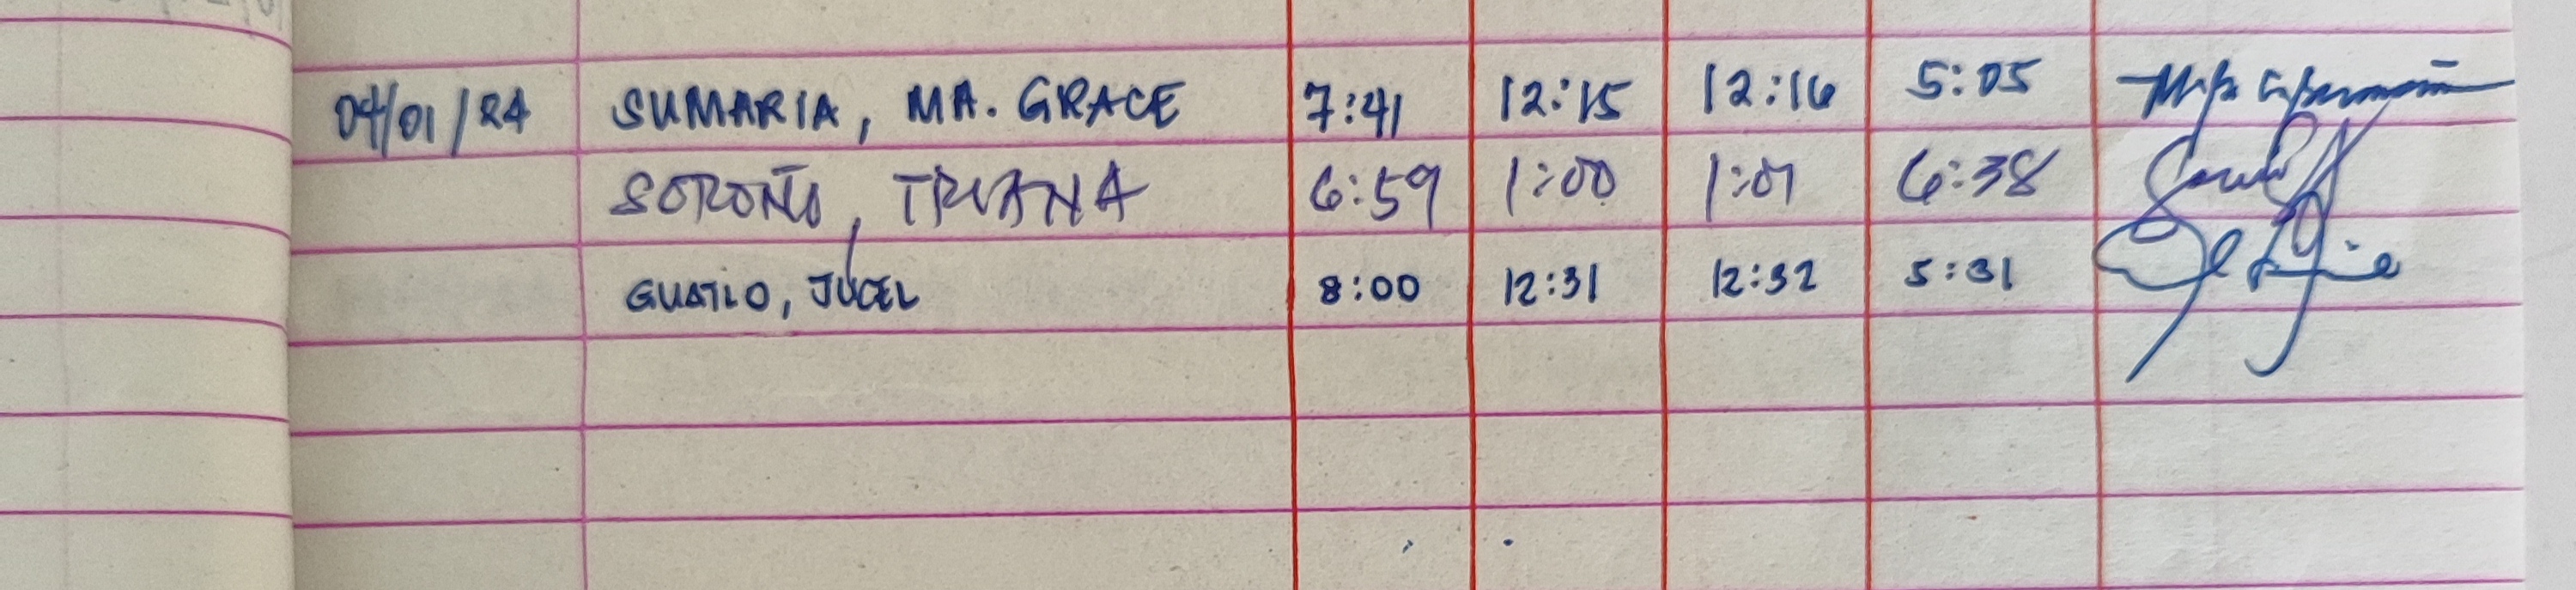 04/01/24 SUMARIA, MA. GRACE 7:41 12:15 12:16 5:05
SOROÑO, TRIANA 6:59 1:00 1:01 6:38
GUATLO, JUCEL 8:00 12:31 12:32 5:31